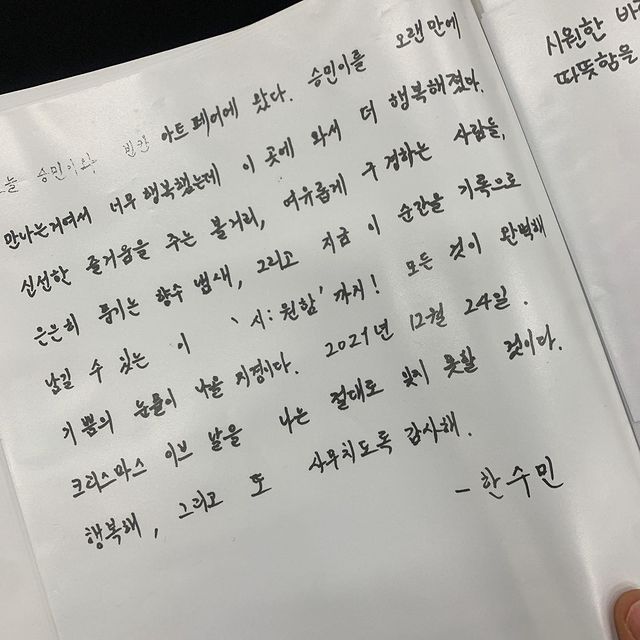 오늘 승민이와 빈칸 아트페어에 왔다. 승민이를 오랜만에
만나는거여서 너무 행복했는데 이 곳에 와서 더 행복해졌다.
신선한 즐거움을 주는 볼거리, 여유롭게 구경하는 사람들,
은은히 풍기는 향수 냄새, 그리고 지금 이 순간을 기록으로
남길 수 있는 이 '시:원함' 까지! 모든 것이 완벽해
기쁨의 눈물이 나올 지경이다. 2021년 12월 24일.
크리스마스 이브 날을 나는 절대로 잊지 못할 것이다.
행복해, 그리고 또 사무치도록 감사해.
- 한수민
시원한
따뜻함을